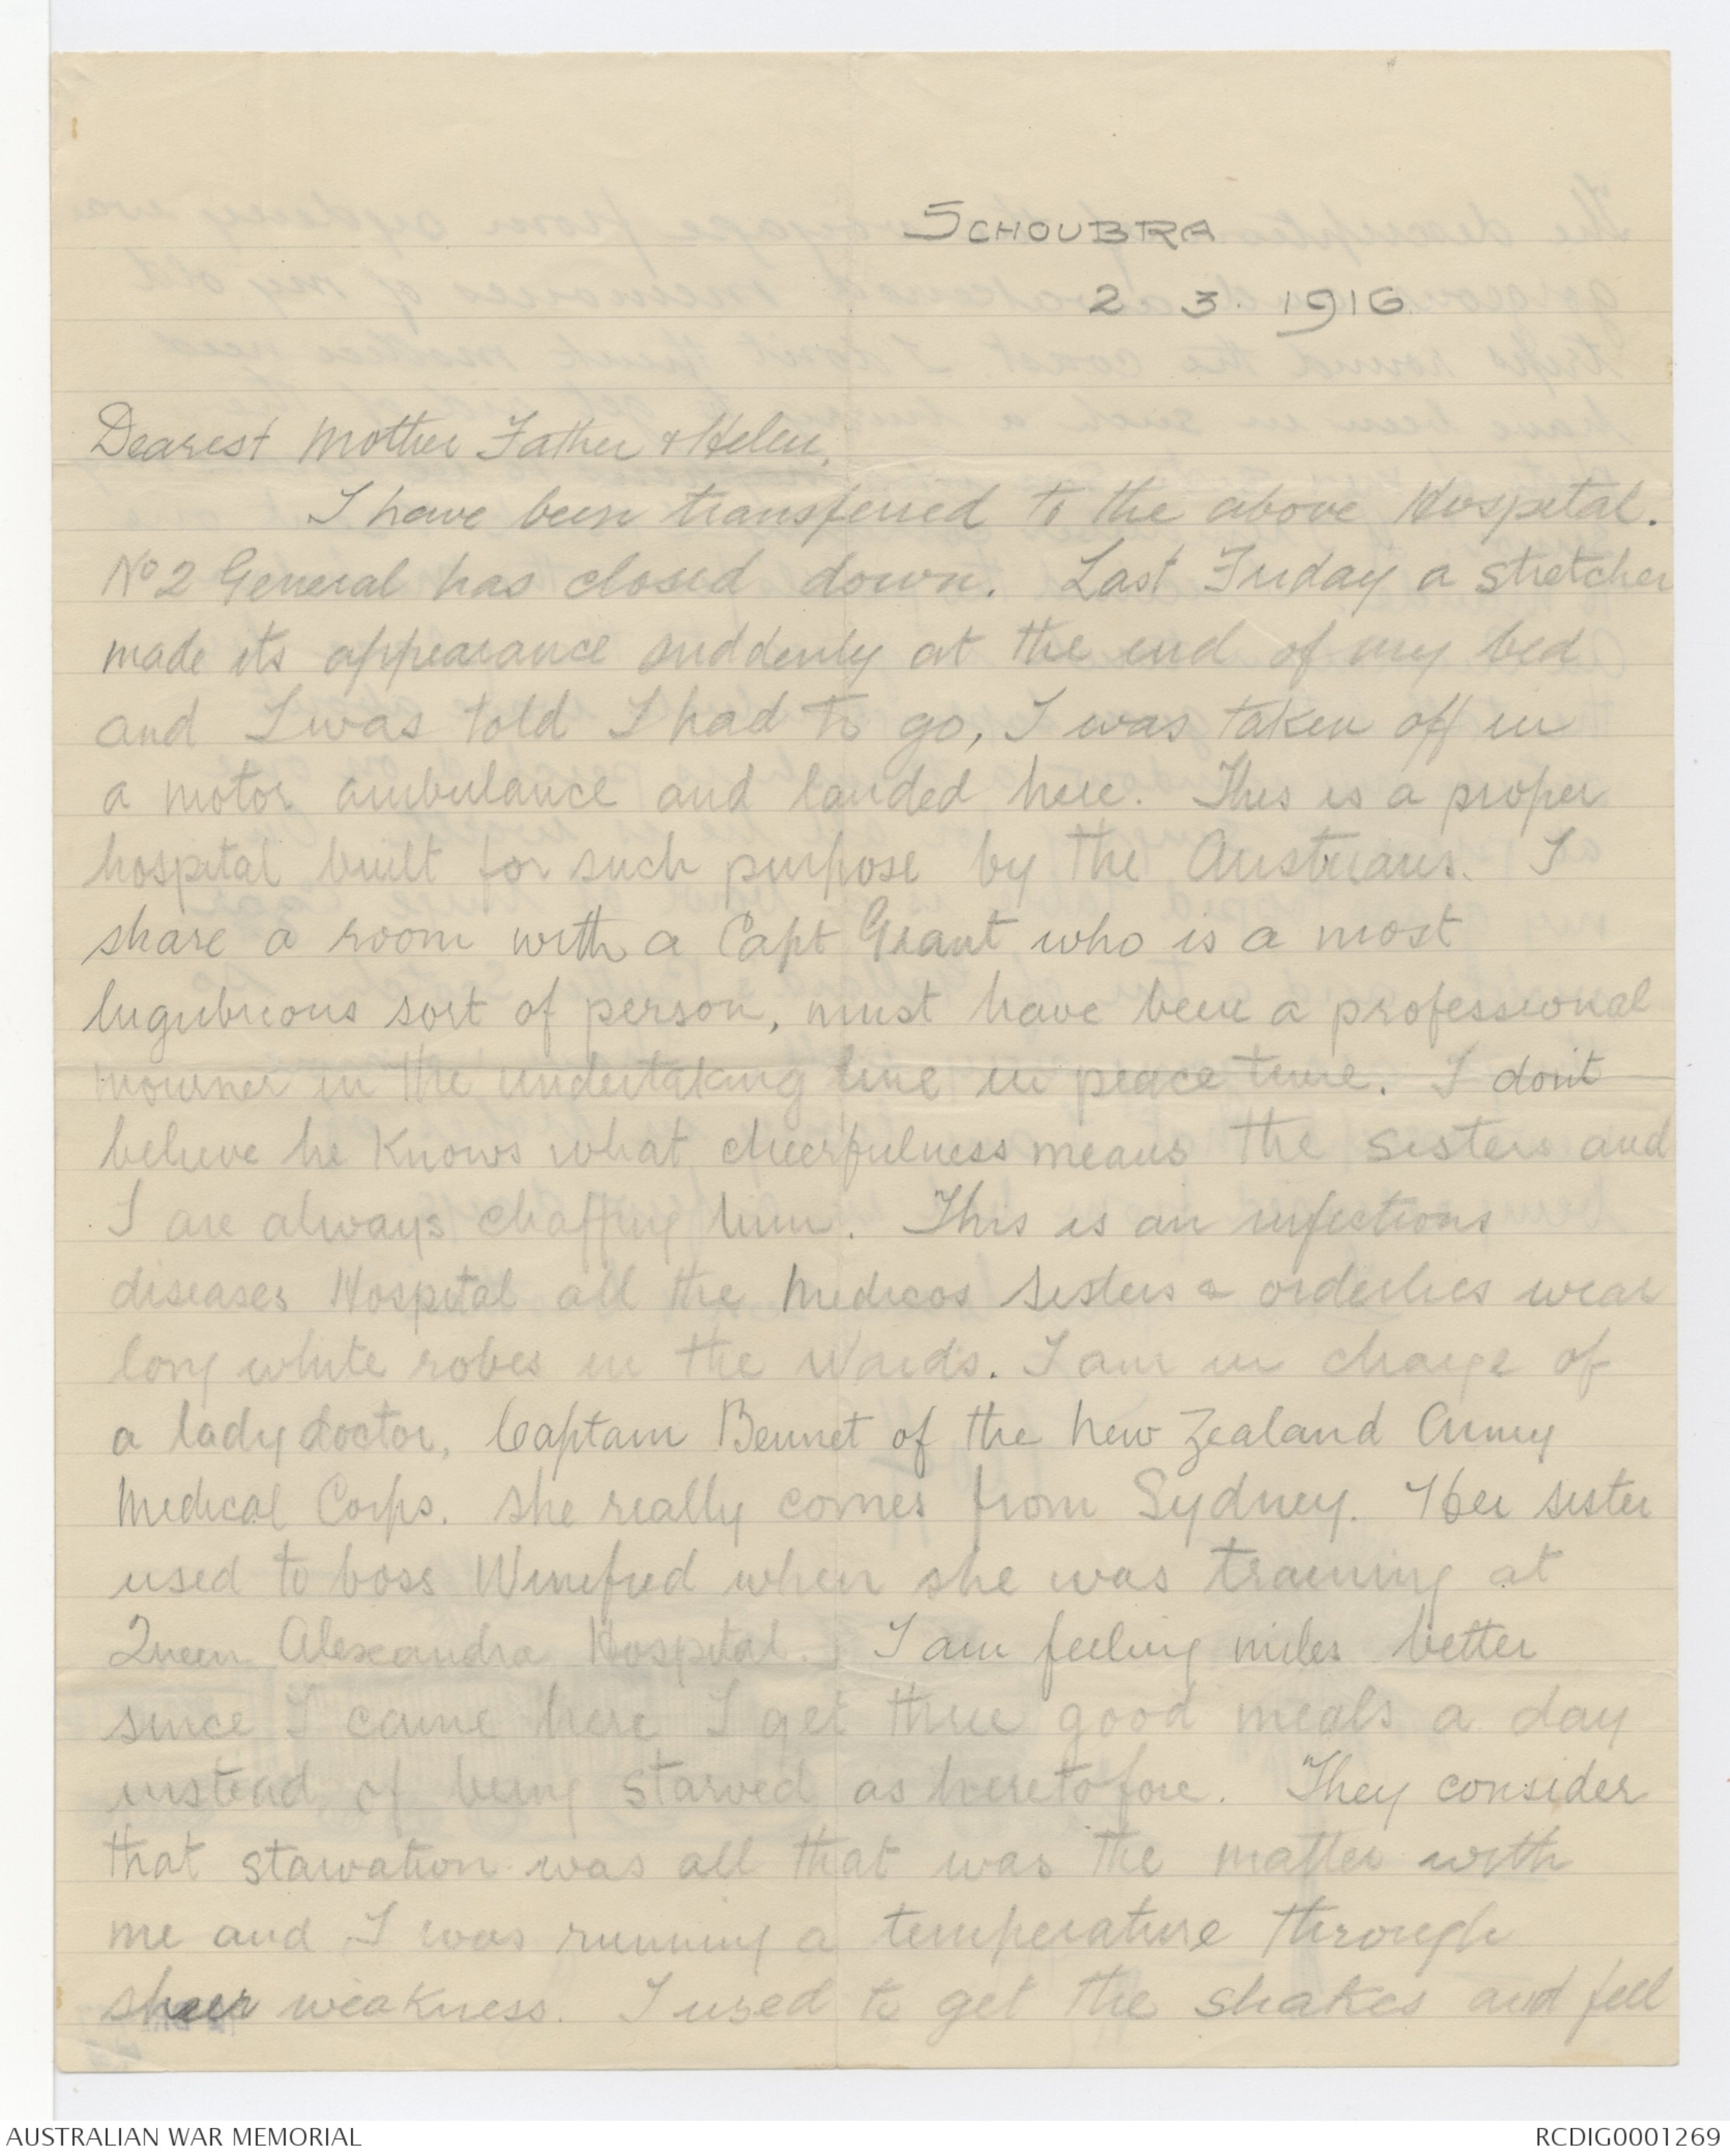 SCHOUBRA
2 3. 1916
Dearest Mother Father & Helen,
I have been transferred to the above Hospital.
No 2 General has closed down. Last Friday a stretcher
made its appearance suddenly at the end of my bed
and I was told I had to go, I was taken off in
a motor ambulance and landed here. This is a proper
hospital built for such purpose by the Austrians. I
share a room with a Capt Grant who is a most
lugubrious sort of person, must have been a professional
mourner in the undertaking line in peace time. I don't
believe he knows what cheerfulness means the sisters and
I are always chaffing him. This is an infectious
diseases Hospital all the Medicos sisters & orderlies wear
long white robes in the Wards. I am in charge of
a lady doctor, Captain Bennet of the New Zealand Army
Medical Corps. She really comes from Sydney. Her sister
used to boss Winefred when she was training at
Queen Alexandra Hospital. I am feeling miles better
since I came here I get three good meals a day
instead of being starved as heretofore. They consider
that starvation was all that was the matter with
me and I was running a temperature through
sheer weakness. I used to get the shakes and feel
AUSTRALIAN WAR MEMORIAL
RCDIG0001269